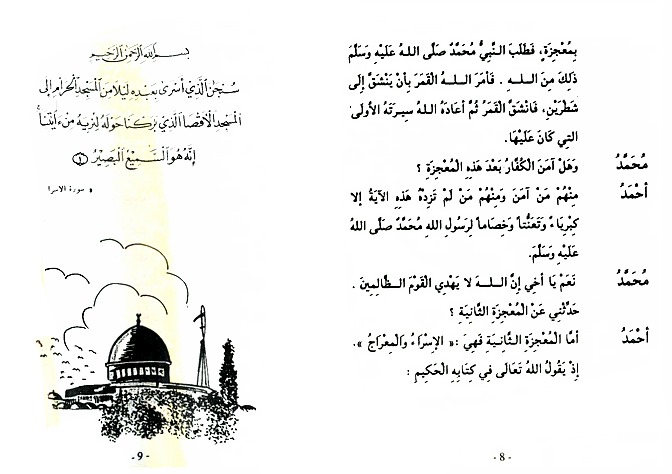 بِمُعْجِزَةٍ، فَطَلَبَ النَّبِيُّ مُحَمَّدٌ صَلَّى اللهُ عَلَيْهِ وَسَلَّمَ
ذَلِكَ مِنَ اللهِ . فَأَمَرَ اللهُ القَمَرَ بِأَنْ يَنْشَقَّ إِلَى
شَطْرَيْنِ، فَانْشَقَّ القَمَرُ ثُمَّ أَعَادَهُ اللهُ سِيرَتَهُ الأُولَى
التي كَانَ عَلَيْهَا.
مُحَمَّدُ وَهَلْ آمَنَ الكُفَّارُ بَعْدَ هَذِهِ المُعْجِزَةِ ؟
أَحْمَدُ مِنْهُمْ مَنْ آمَنَ وَمِنْهُمْ مَنْ لَمْ تَزِدْهُ هَذِهِ الآيَةُ إلا
كِبْرِيَاءً وَتَعَنُّتاً وَخِصَاماً لِرَسُولِ اللهِ مُحَمَّدٍ صَلَّى اللهُ
عَلَيْهِ وَسَلَّمَ.
مُحَمَّدُ نَعَمْ يَا أَخِي إِنَّ اللهَ لا يَهْدِي القَوْمَ الظَّالِمِينَ .
حَدِّثْنِي عَنْ الْمُعْجِزَةِ الثَّانِيَةِ ؟
أَحْمَدُ أَمَّا الْمُعْجِزَةُ الثَّانِيَةُ فَهِيَ :« الإِسْرَاءُ وَالمِعْرَاجُ ».
إِذْ يَقُولُ اللهُ تَعَالَى فِي كِتَابِهِ الْحَكِيمِ :
- 8 -
بِسْمِ اللهِ الرَّحْمَنِ الرَّحِيمِ
سُبْحَٰنَ ٱلَّذِىٓ أَسْرَىٰ بِعَبْدِهِۦ لَيْلًا مِّنَ ٱلْمَسْجِدِ ٱلْحَرَامِ إِلَى
ٱلْمَسْجِدِ ٱلْأَقْصَا ٱلَّذِى بَٰرَكْنَا حَوْلَهُۥ لِنُرِيَهُۥ مِنْ ءَايَٰتِنَآ
إِنَّهُۥ هُوَ ٱلسَّمِيعُ ٱلْبَصِيرُ ۝١
« سورة الاسرا
- 9 -